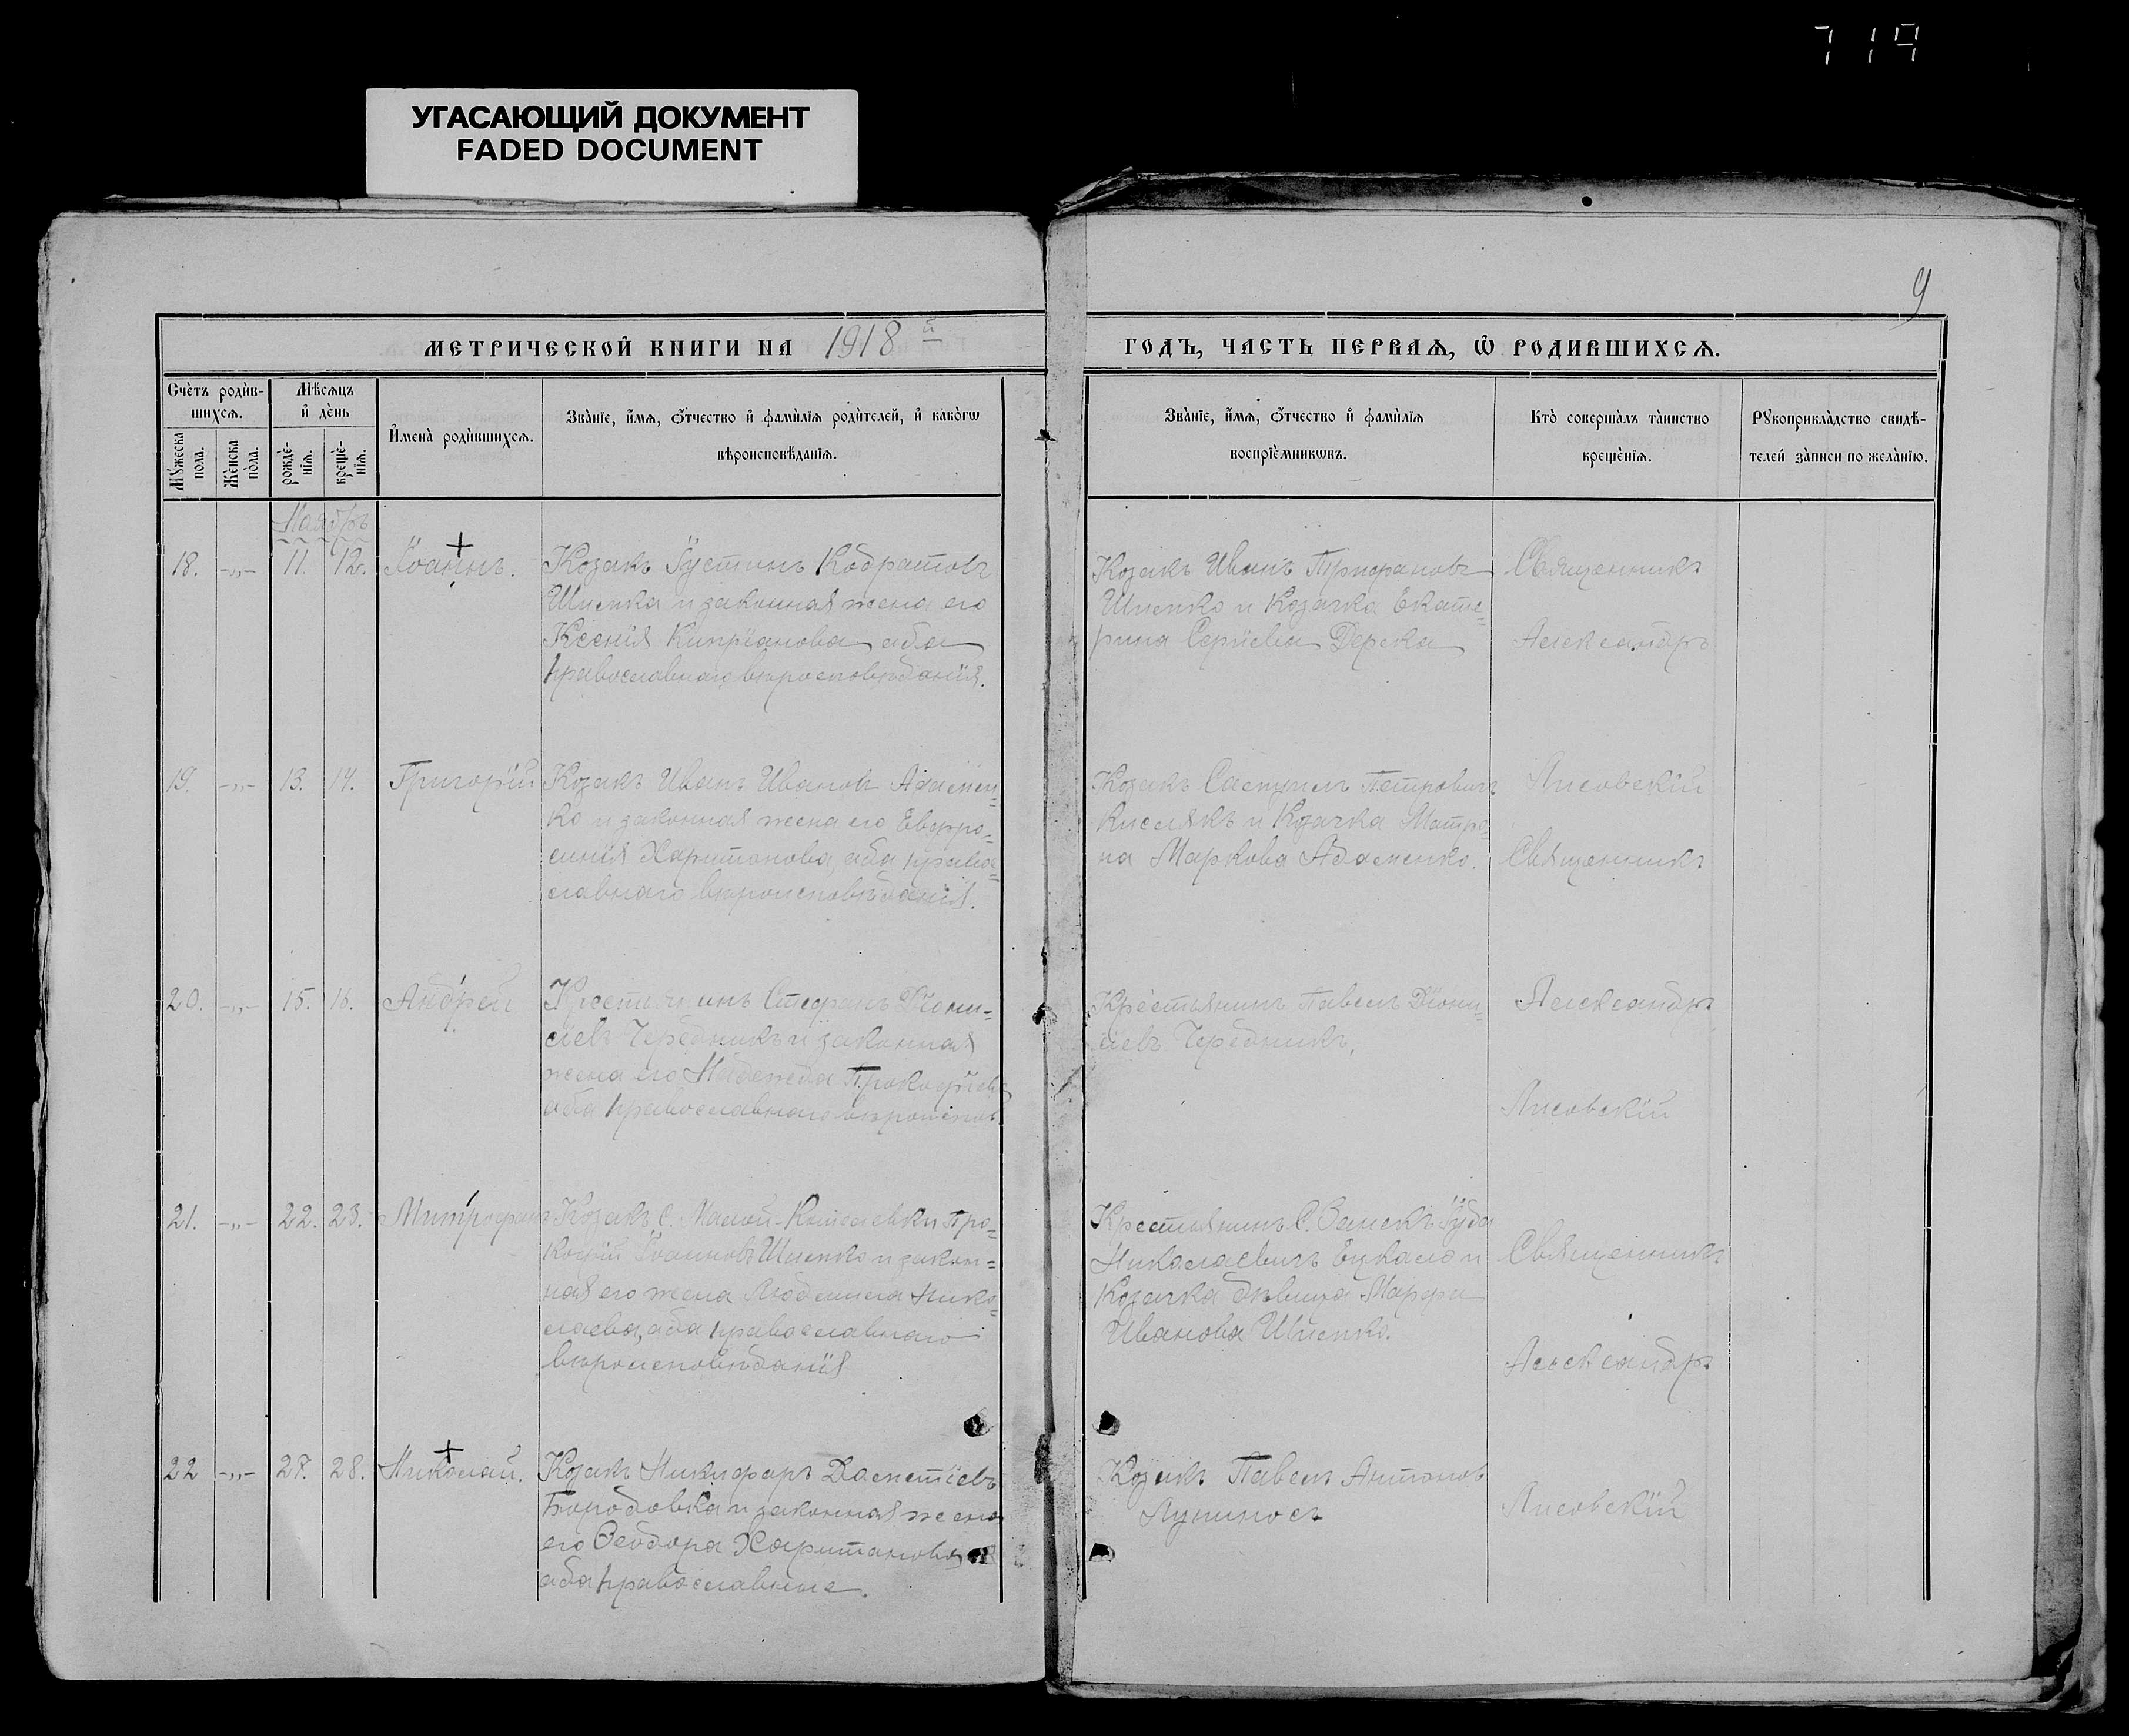 719
УГАСАЮЩИЙ ДОКУМЕНТ
FADED DOCUMENT
9
МЕТРИЧЕСКОЙ КНИГИ НА 1918 й
ГОДЪ, ЧАСТЬ ПЕРВАѦ, Ѡ РОДИВШИХСѦ.
Счетъ родив-
шихсѧ.
Мꙋжеска
пола.
Женска
пола.
Мѣсѧцъ
и день
рожде-
нїѧ.
креще-
нїѧ.
Имена родившихсѧ.
Званїе, имѧ, ѿчество и фамилїѧ родителей, и какогѡ
вѣроисповѣданїѧ.
Званїе, имѧ, ѿчество и фамилїѧ
воспрїемникѡвъ.
Кто совершалъ таинство
крещенїѧ.
Рꙋкоприкладство свидѣ-
телей записи по желанїю.
Ноябрь
18. -„- 11. 12. Іоаннъ.
Козакъ Іустинъ Кодратовъ
Шнепка и законная жена его
Ксенія Кипріанова оба
православнаго вѣроисповѣданія.
Козакъ Иванъ
Шнепко и Козачка Екате=
рина Сергіева
Священникъ
Александръ
19. -„- 13. 14. Григорій
Козакъ Иванъ Ивановъ Адамен=
ко и законная жена его Евфро=
синія Харитонова, оба право=
славнаго вѣроисповѣданія.
Козакъ Петровичъ
Кислякъ и Козачка Матро=
на Маркова Адаменко.
Лисовскій
Священникъ
20. -„- 15. 16. Андрей
Крестьянинъ Стефанъ Діони-
сіевъ Чередникъ и законная
жена его Надежда Прокофіева
оба православнаго вѣроиспов
Крестьянинъ Павелъ Діони=
сіевъ Чередникъ.
Александръ
Лисовскій
21. -„- 22. 23. Митрофанъ
Козакъ с. Малой- Про=
кофій Іоанновъ Шнепко и закон=
ная его жена Людмила Нико=
лаева, оба православнаго
вѣроисповѣданія
Крестьянинъ С.
Николаевичъ и
Козачка дѣвица Марфа
Иванова Шнепко.
Священникъ
Александръ
22 -„- 27. 28. Николай.
Козакъ Никифоръ Дометіевъ
Бородовка и законная жена
его Ѳеодора Харитонова
оба православные.
Козакъ Павелъ Антоновъ
Лупиносъ
Лисовскій